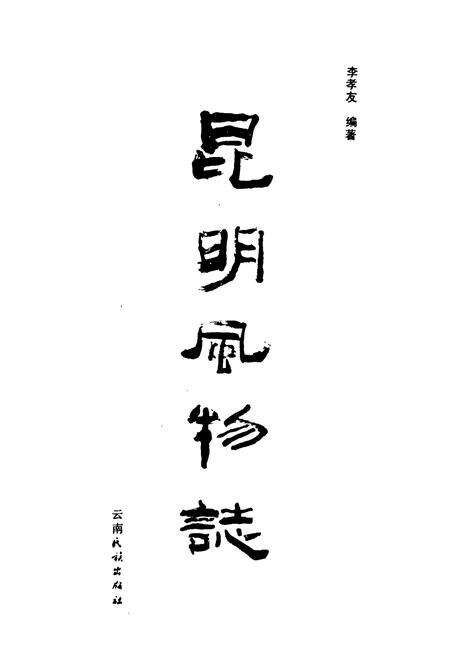 李孝友 编著
昆明風物誌
云南民族出版社